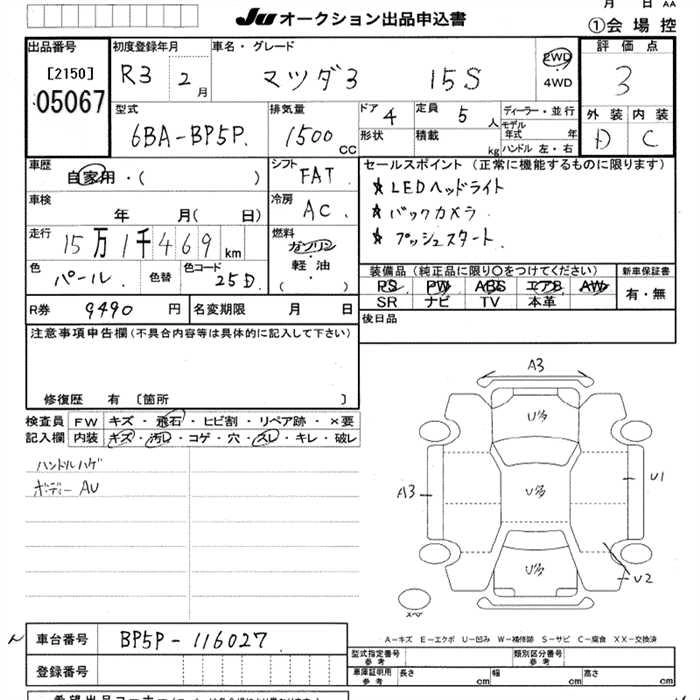 月 日 AA
JU オークション出品申込書
①会場控
出品番号
[2150]
05067
初度登録年月
R3 2月
車名・グレード
マツダ3 15S
2WD
4WD
評価点
3
型式
6BA-BP5P
排気量
1500 CC
ドア 4
形状
定員 5 人
積載 kg
ディーラー・並行
モデル年式 年
ハンドル 左・右
外装 内装
D C
車歴
自家用・( )
シフト
FAT
車検
年 月( 日)
冷房
AC
走行
15万1千469km
燃料
ガソリン
軽・油
( )
色
パール
色替
色コード
25D
セールスポイント (正常に機能するものに限ります)
★LEDヘッドライト
★バックカメラ
★プッシュスタート
装備品 (純正品に限り○をつけてください)
PS PW ABS エアB AW
SR ナビ TV 本革
新車保証書
有・無
R券 9490 円
名変期限 月 日
後日品
注意事項申告欄(不具合内容等は具体的に記入して下さい)
修復歴 有 [箇所 ]
検査員記入欄
FW キズ・飛石・ヒビ割・リペア跡・×要
内装 キズ・汚レ・コゲ・穴・スレ・キレ・破レ
ハンドルハゲ
ボディーAU
A3
A3
U1
U2
スペア
A-キズ E-エクボ U-凹み W-補修跡 S-サビ C-腐食 XX-交換済
車台番号 BP5P-116027
登録番号
型式指定番号 参考
類別区分番号 参考
車庫証明用 参考
長さ cm 幅 cm 高さ cm